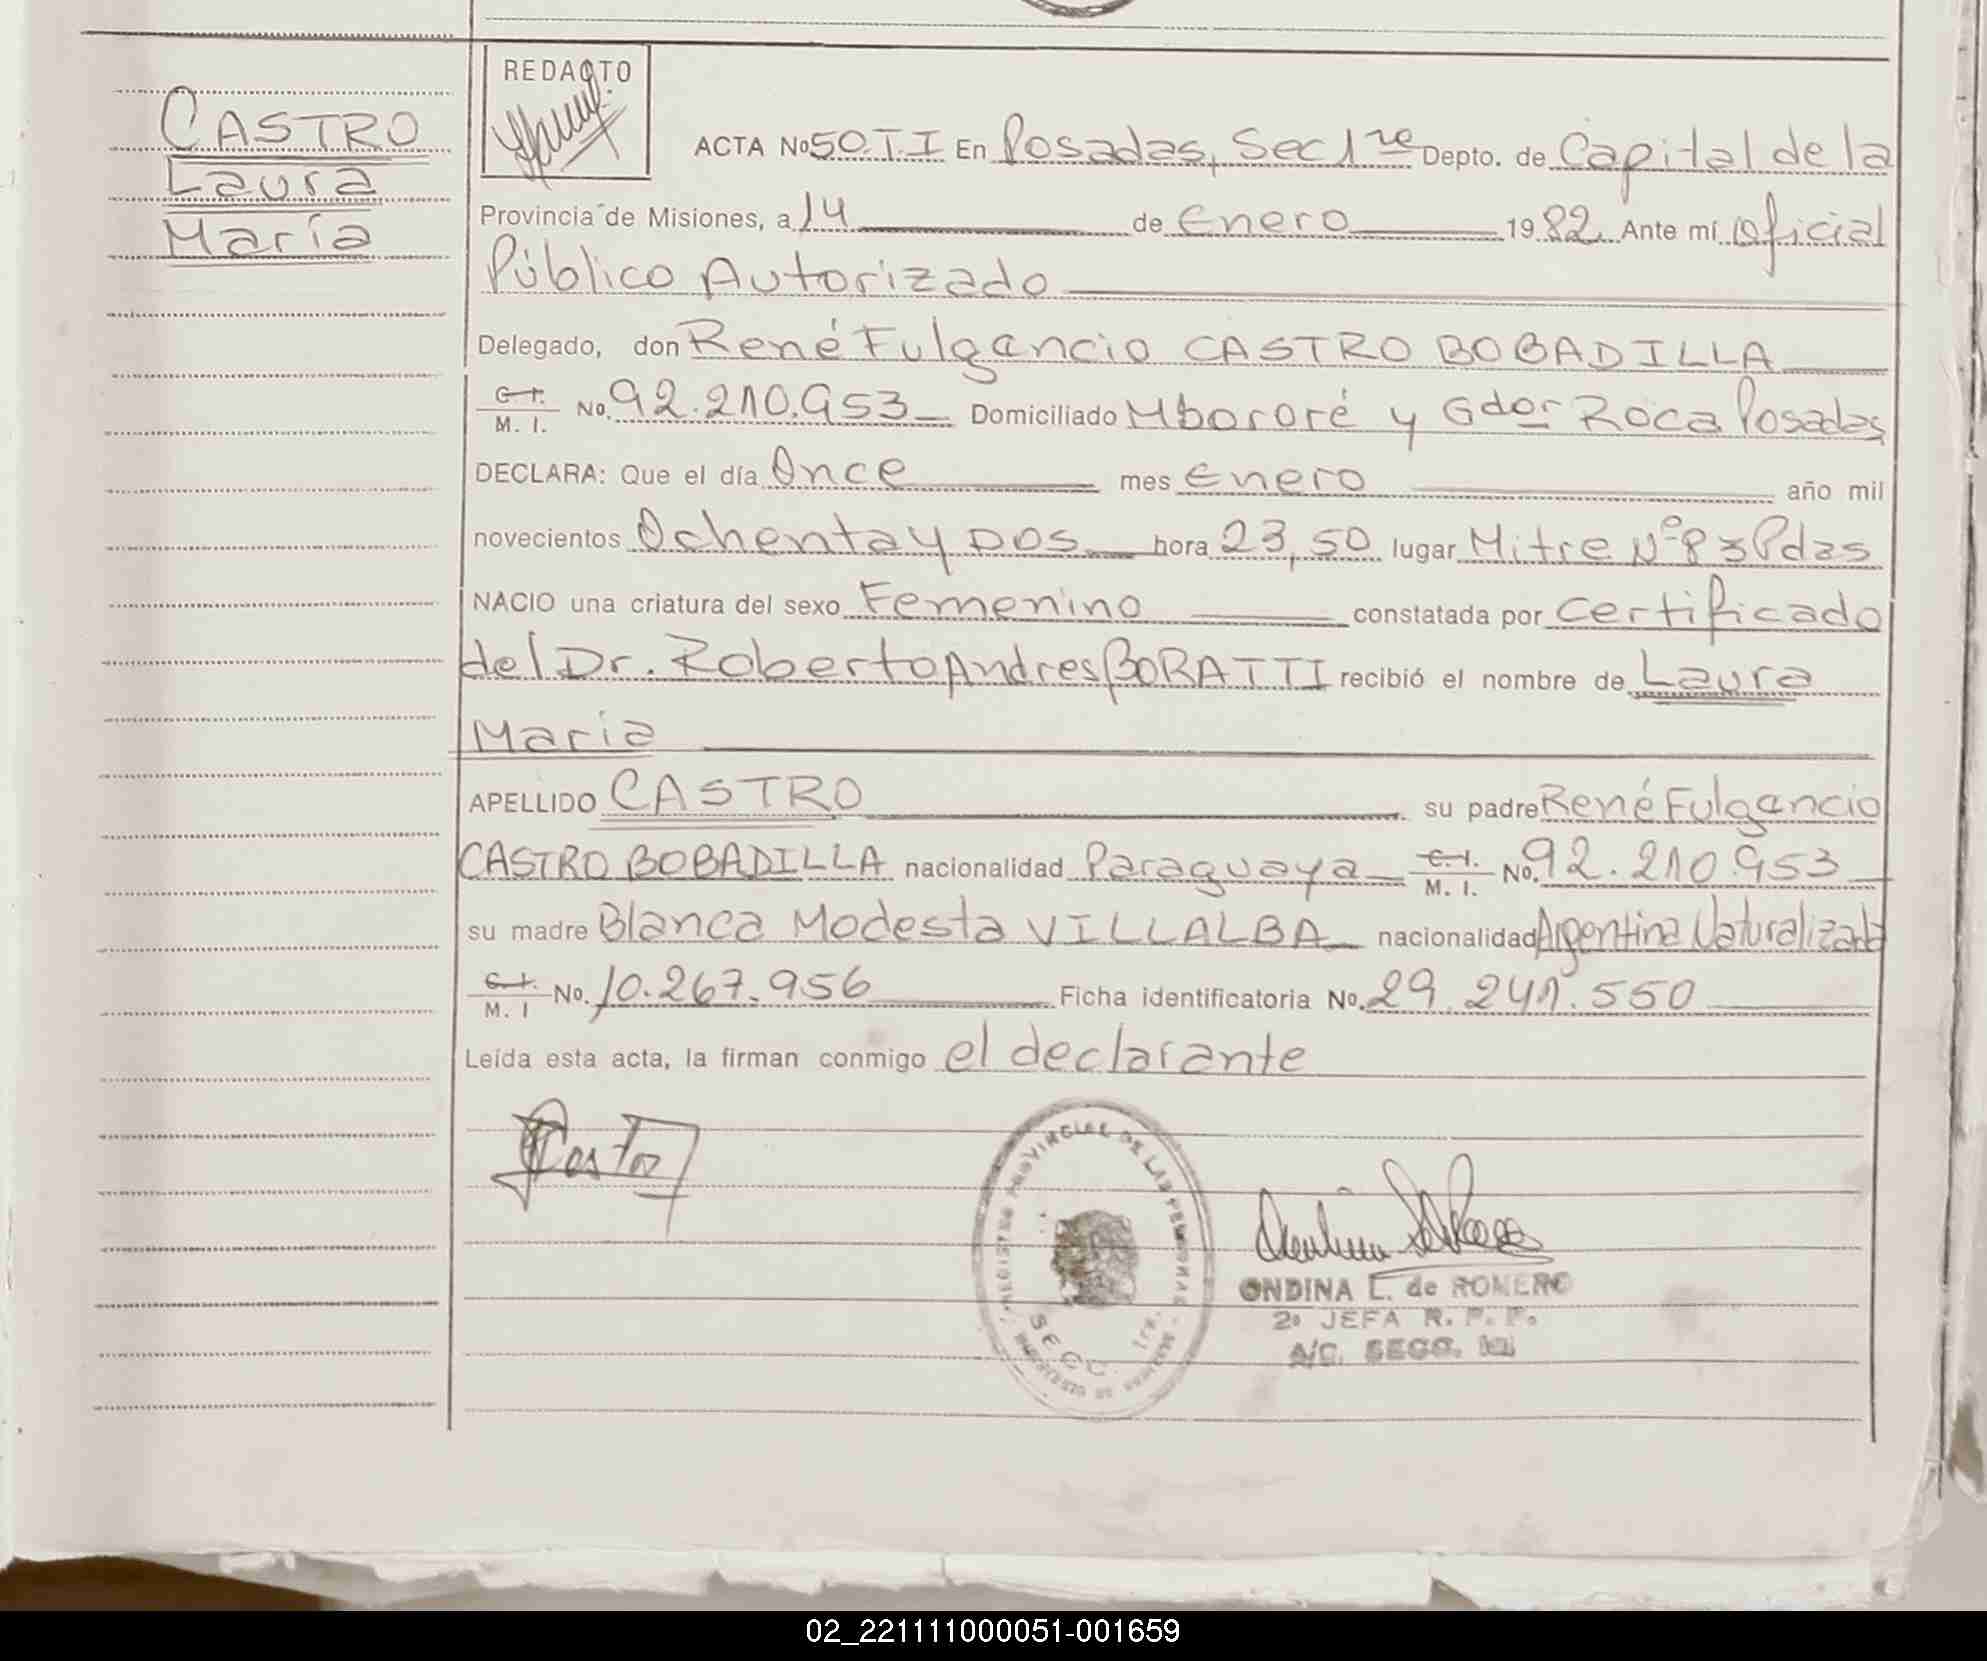 CASTRO
Laura
María
REDACTO
ACTA No 50.T.I En Posadas, Sec 1ra Depto. de Capital de la
Provincia de Misiones, a 14 de Enero 1982 Ante mí Oficial
Público Autorizado
Delegado, don René Fulgencio CASTRO BOBADILLA
C.I. M. I. No. 92.210.953 Domiciliado Mbororé y Gdor Roca Posadas
DECLARA: Que el día Once mes Enero año mil
novecientos Ochenta y Dos hora 23,50 lugar Mitre Nº 83 Pdas
NACIO una criatura del sexo Femenino constatada por Certificado
del Dr. Roberto Andres BORATTI recibió el nombre de Laura
María
APELLIDO CASTRO su padre René Fulgencio
CASTRO BOBADILLA nacionalidad Paraguaya C.I. M. I. No. 92.210.953
su madre Blanca Modesta VILLALBA nacionalidad Argentina Naturalizada
C.I. M. I No. 10.267.956 Ficha identificatoria No. 29.241.550
Leída esta acta, la firman conmigo el declarante
REGISTRO PROVINCIAL DE LAS PERSONAS
SECC. 1ra.
ONDINA L. de ROMERO
2º JEFA R. P. P.
A/C. SECC. 1ra
02_221111000051-001659